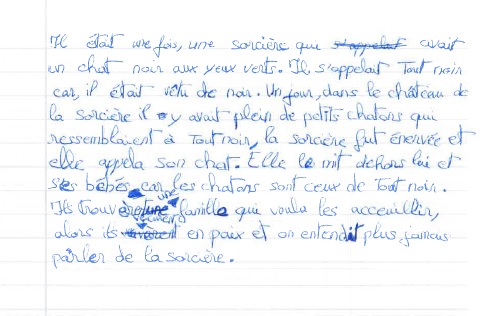 Il était une fois, une sorcière que s'appelait avait
un chat noir aux yeux verts. Il s'appelait Tout noir
car, il était vêtu de noir. Un jour, dans le château de
la sorcière il y avait plein de petits chatons qui
ressemblaient à Tout noir, la sorcière fut énervée et
elle appela son chat. Elle le mit dehors lui et
ses bébés car les chatons sont ceux de Tout noir.
Ils trouvèrent une famille qui voulu les acceuillir,
alors ils vécurent en paix et on entendit plus jamais
parler de la sorcière.